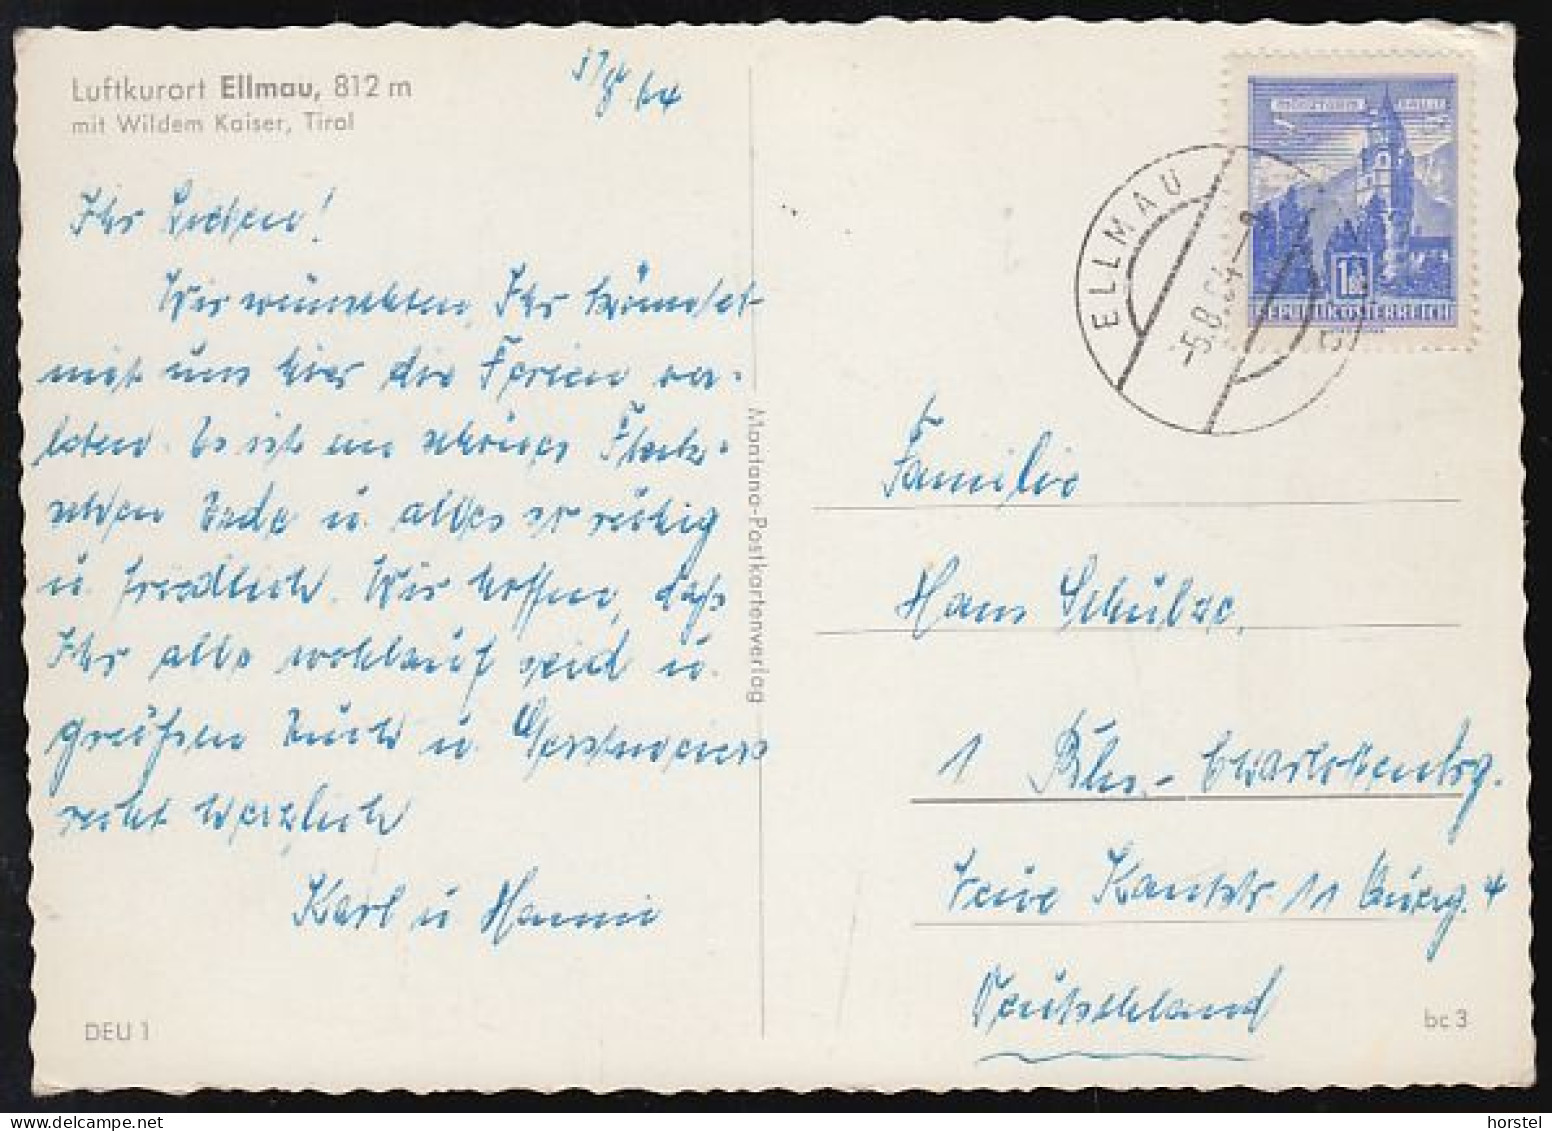 Luftkurort Ellmau, 812 m
mit Wildem Kaiser, Tirol
8.64
Ihr Lieben!
Wir wünschten, Ihr könntet
mit uns hier die Ferien ver-
leben. Es ist ein schönes Fleck-
chen Erde u. alles so ruhig
u. friedlich. Wir hoffen, daß
Ihr alle wohlauf seid u.
grüßen Euch u.
recht herzlich
Karl u Hanni
DEU 1
Montana-Postkartenverlag
ELLMAU
-5.8.64-
REPUBLIK ÖSTERREICH
Familie
Hans Schulze,
1 Bln.- Charlottenbg.
Neue Kantstr. 11
Deutschland
bc 3
horstel
delcampe.net